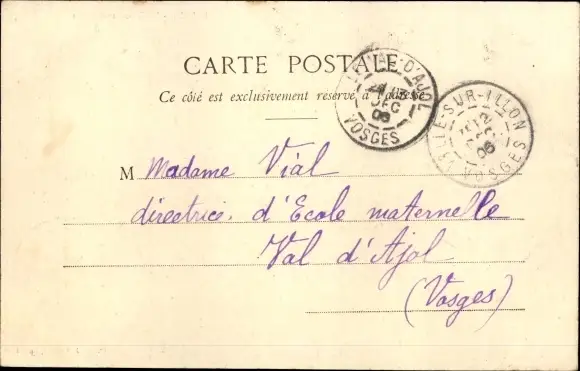 CARTE POSTALE
Ce côté est exclusivement réservé à l'adresse
D'AJOL
DEC
06
VOSGES
VILLE-SUR-ILLON
12
06
VOSGES
M Madame Vial
directrice. d'Ecole maternelle
Val d'Ajol
(Vosges)